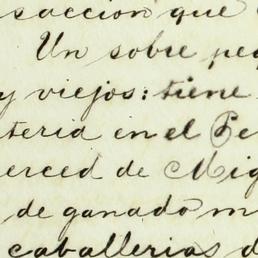 saccion que
Un sobre peq
y viejos: tiene
teria en el Pe
erced de Mig
de ganado m
caballerias d